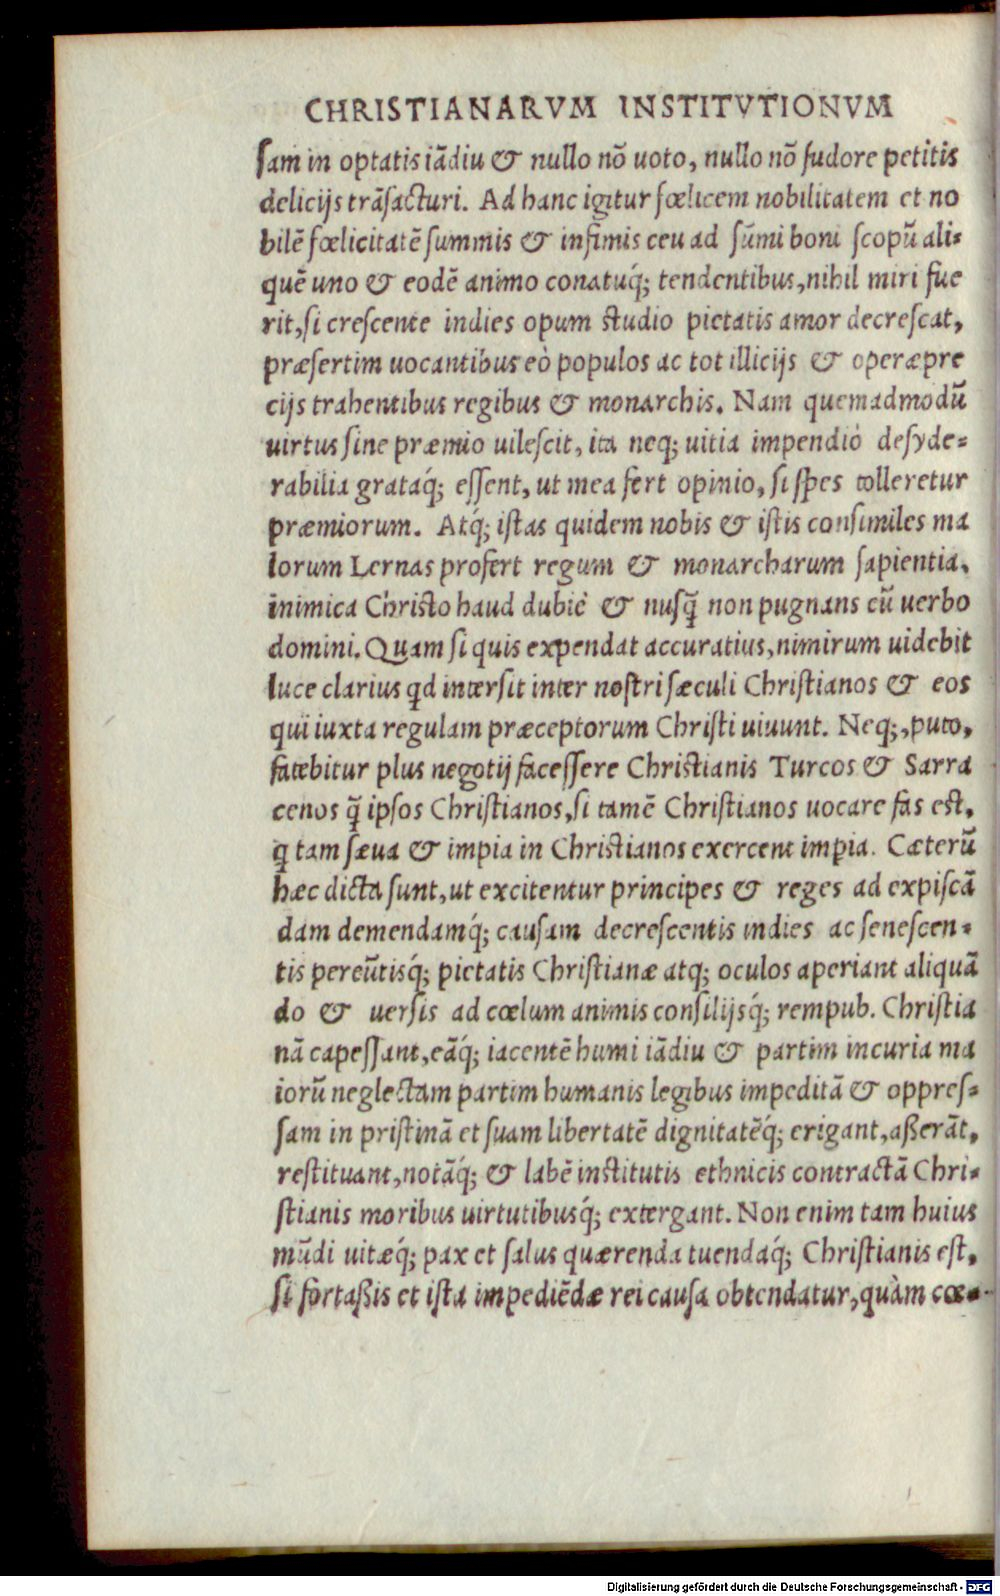 CHRISTIANARVM INSTITVTIONVM
sam in optatis iãdiu & nullo nõ uoto, nullo nõ sudore petitis
delicijs trãsacturi. Ad hanc igitur fœlicem nobilitatem et no
bilẽ fœlicitatẽ summis & infimis ceu ad sũmi boni scopũ ali-
quẽ uno & eodẽ animo conatuq́; tendentibus, nihil miri fue
rit, si crescente indies opum studio pietatis amor decrescat,
præsertim uocantibus eò populos ac tot illicijs & operæpre
cijs trahentibus regibus & monarchis. Nam quemadmodũ
uirtus sine præmio uilescit, ita neq; uitia impendiò desyde-
rabilia grataq́; essent, ut mea fert opinio, si spes tolleretur
præmiorum. Atq́; istas quidem nobis & istis consimiles ma
lorum Lernas profert regum & monarcharum sapientia,
inimica Christo haud dubiè & nusq̃ non pugnans cũ uerbo
domini. Quam si quis expendat accuratius, nimirum uidebit
luce clarius qd intersit inter nostri sæculi Christianos & eos
qui iuxta regulam præceptorum Christi uiuunt. Neq;, puto,
fatebitur plus negotij facessere Christianis Turcos & Sarra
cenos q̃ ipsos Christianos, si tamẽ Christianos uocare fas est,
q tam sæua & impia in Christianos exercent impia. Cæterũ
hæc dicta sunt, ut excitentur principes & reges ad expiscã
dam demendamq́; causam decrescentis indies ac senescen-
tis pereũtisq́; pietatis Christianæ atq; oculos aperiant aliquã
do & uersis ad cœlum animis consilijsq́; rempub. Christia
nã capessant, eãq́; iacentẽ humi iãdiu & partim incuria ma
iorũ neglectam partim humanis legibus impeditã & oppres-
sam in pristinã et suam libertatẽ dignitatẽq́; erigant, aßerãt,
restituant, notãq́; & labẽ institutis ethnicis contractã Chri-
stianis moribus uirtutibusq́; extergant. Non enim tam huius
mũdi uitæq́; pax et salus quærenda tuendaq́; Christianis est,
si fortaßis et ista impediẽdæ rei causa obtendatur, quàm cœ-
Digitalisierung gefördert durch die Deutsche Forschungsgemeinschaft - DFG